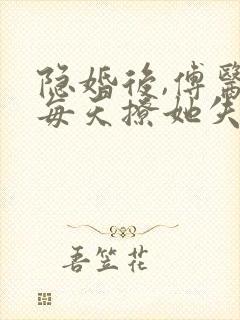 隐婚後,傅醫
每天撩她失
吾笠花